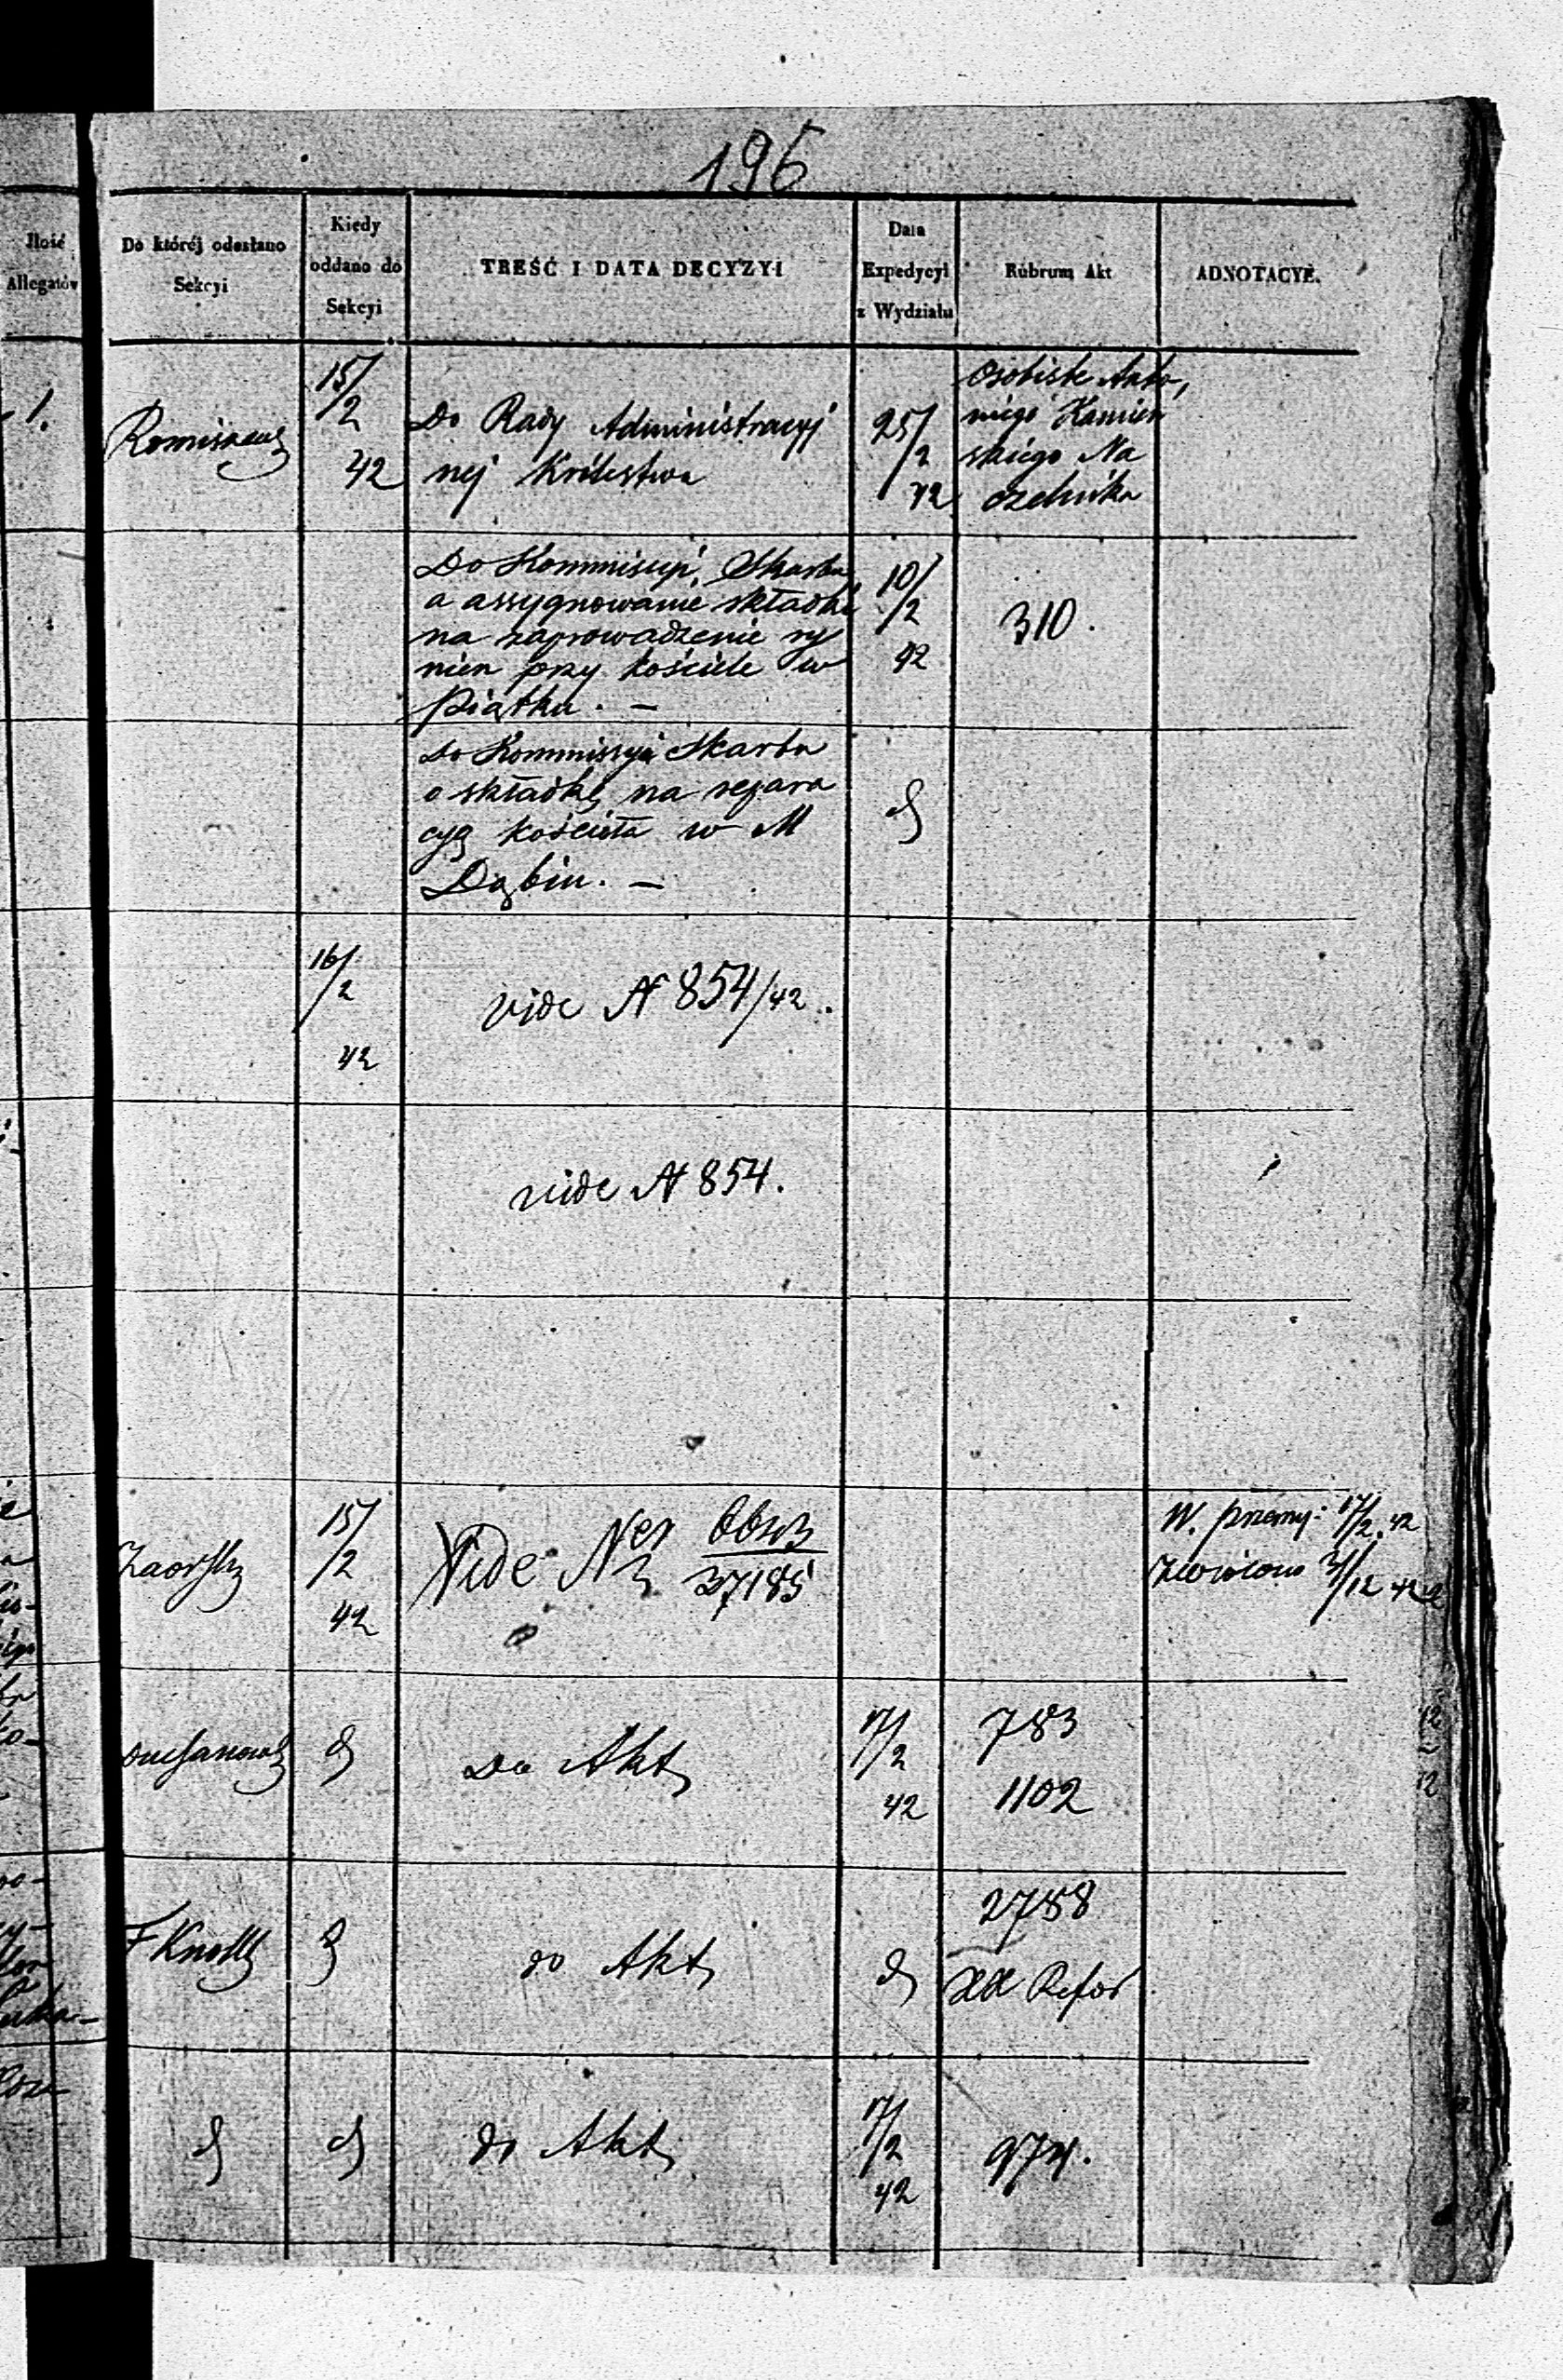 196
Ilość
Allegatów
Do któréj odesłano
Sekcyi
Kiedy
oddano do
Sekcyi
TREŚĆ I DATA DECYZYI
Data
Expedycyi
z Wydziału
Rubrum Akt
ADNOTACYE.
1.
15/2
42
Do Rady Administracyj
nej Królestwa
25/2
42
Osobiste Anto,
niego Kamień
skiego Na
czelnika
Do Kommissyi Skarbu
o assygnowanie składki
na zaprowadzenie ry
nien przy kościele w
Piątku. —
10/2
42
310.
do Kommissyi Skarbu
o składkę na repara
cyą kościoła w M
Dąbiu. —
16/2
42
vide N 854/42.
vide N 854.
15/2
42
Vide
37185
W. przemy: 17/2 42
Zwrócono 31/12 42
Do Akt
17/2
42
783
1102
do Akt
2788
do Akt
17/2
42
974.